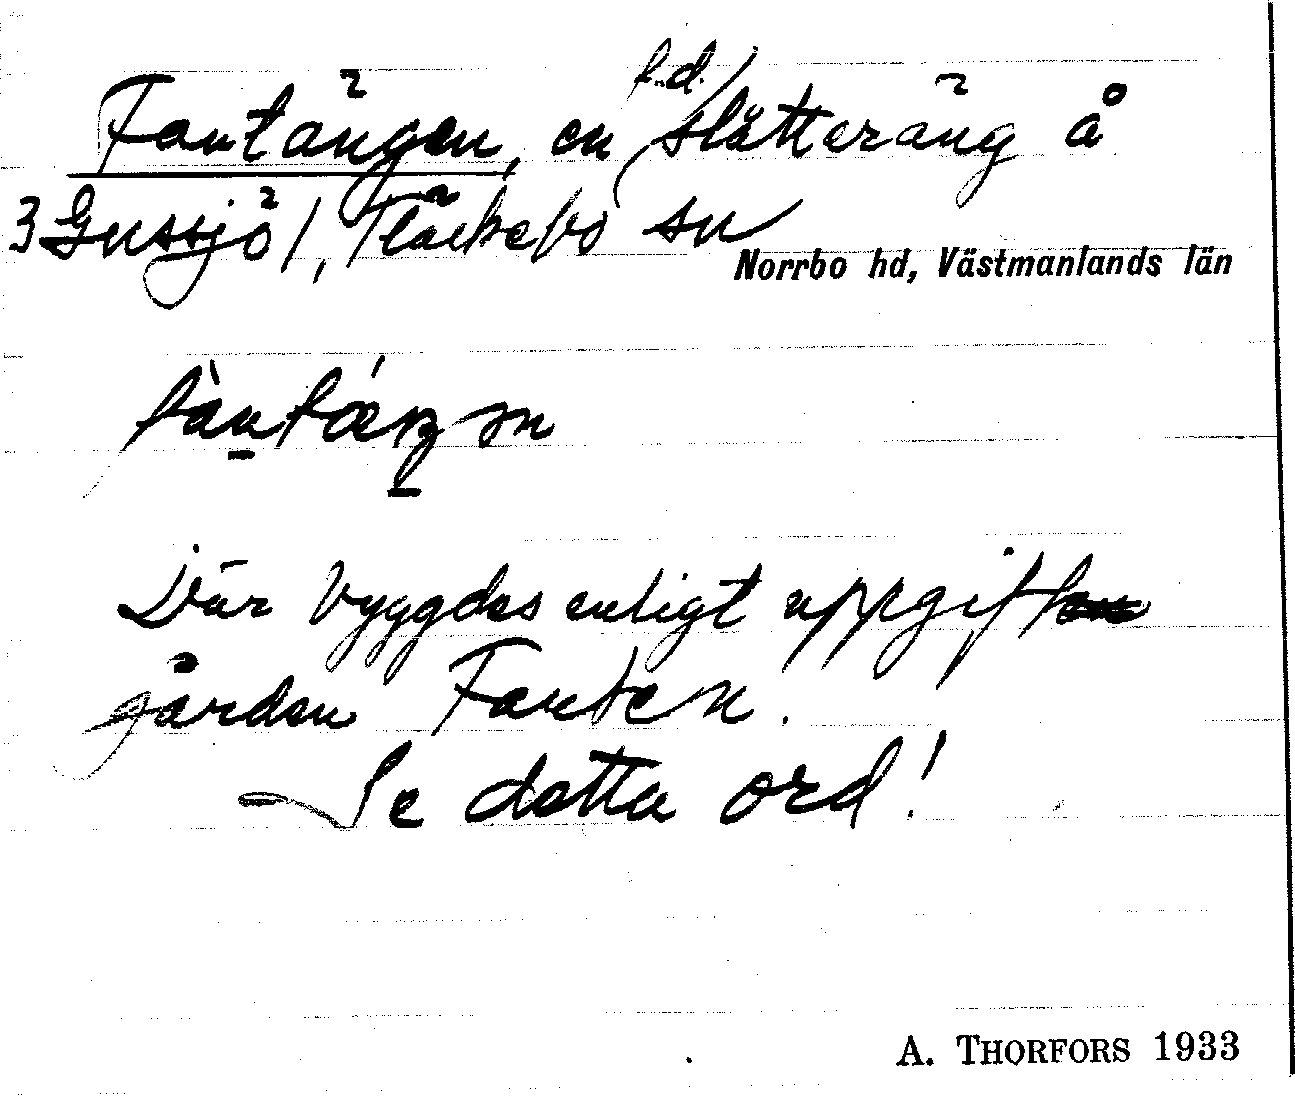 Fantängen, en f.d. slätteräng å
3 Gussjö 1, Fläckebo sn
Norrbo hd, Västmanlands län
Där byggdes enligt uppgift
gården Fanten.
Se detta ord!
A. THORFORS 1933